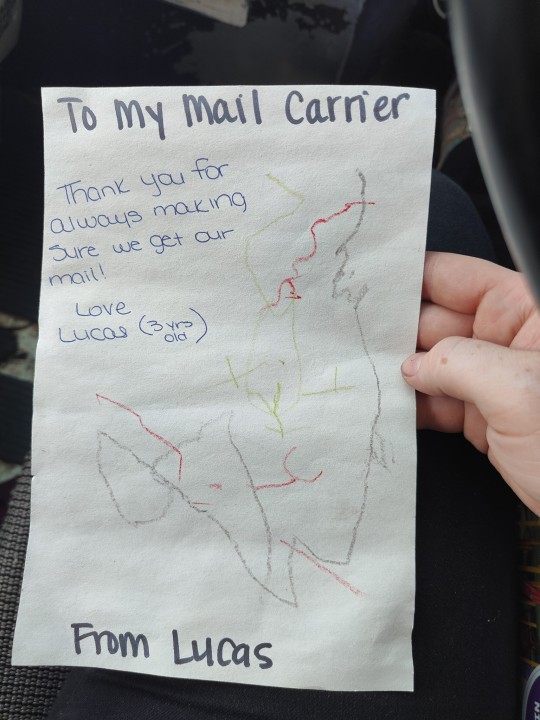 To My Mail Carrier
Thank you for
always making
sure we get our
mail!
Love
Lucas (3 yrs
old)
From Lucas